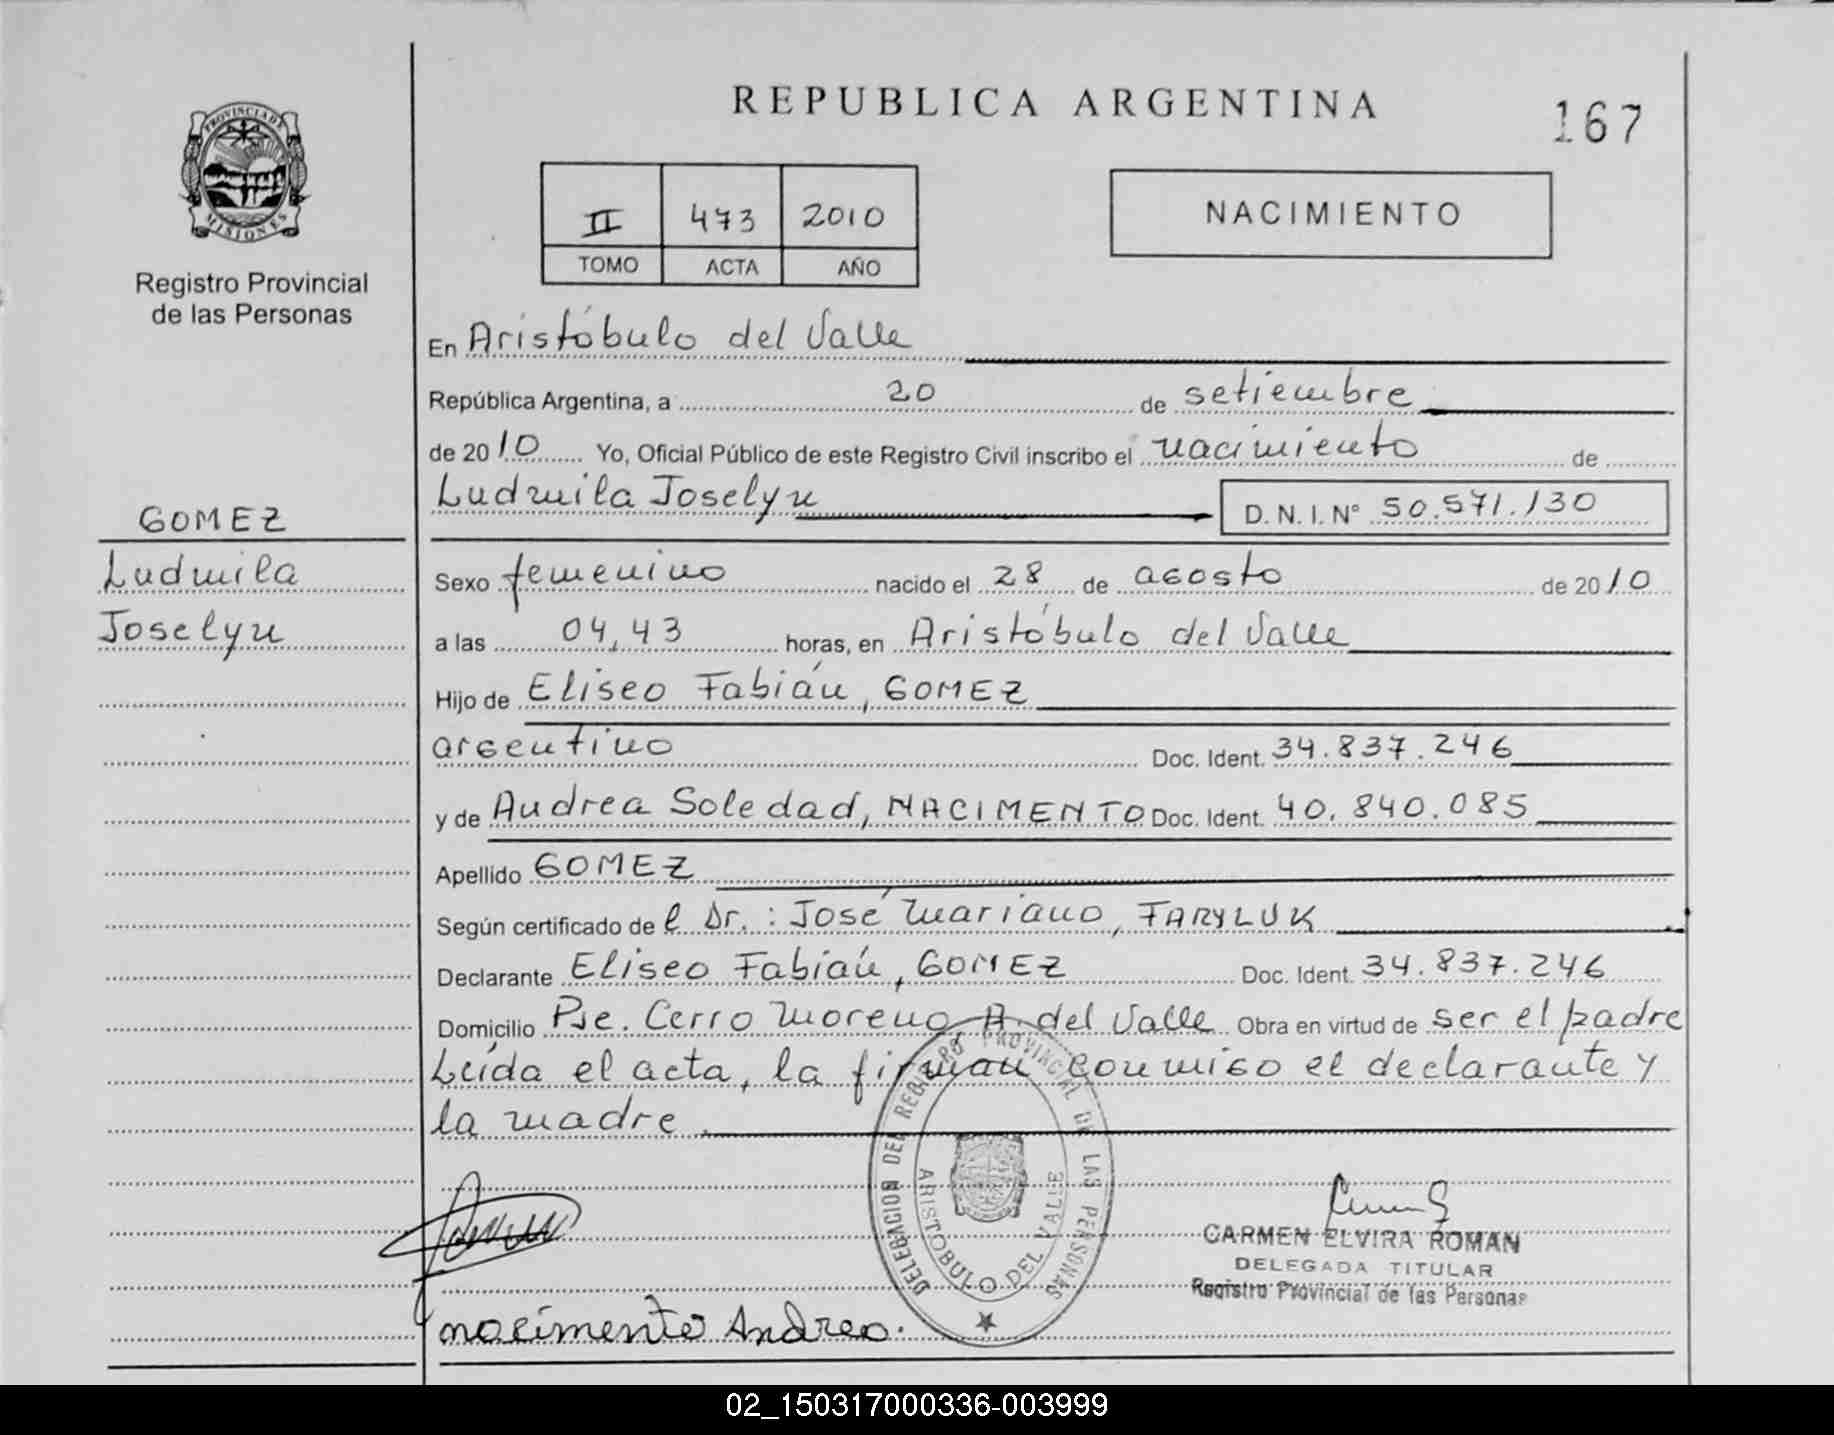 REPUBLICA ARGENTINA
167
PROVINCIA DE MISIONES
Registro Provincial
de las Personas
II 473 2010
TOMO ACTA AÑO
NACIMIENTO
En Aristóbulo del Valle
República Argentina, a 20 de setiembre
de 2010 Yo, Oficial Público de este Registro Civil inscribo el nacimiento de
Ludmila Joselyn D. N. I. Nº 50.571.130
GOMEZ
Ludmila
Joselyn
Sexo femenino nacido el 28 de agosto de 2010
a las 04,43 horas, en Aristóbulo del Valle
Hijo de Eliseo Fabián, GOMEZ
argentino Doc. Ident. 34.837.246
y de Andrea Soledad, NACIMENTO Doc. Ident. 40.840.085
Apellido GOMEZ
Según certificado de l Dr.: José Mariano, TARYLUK
Declarante Eliseo Fabián, GOMEZ Doc. Ident. 34.837.246
Domicilio Pje. Cerro Moreno, A. del Valle Obra en virtud de ser el padre
Leída el acta, la firman conmigo el declarante y
la madre.
DELEGACION DEL REGISTRO PROVINCIAL DE LAS PERSONAS
ARISTOBULO DEL VALLE
CARMEN ELVIRA ROMAN
DELEGADA TITULAR
Registro Provincial de las Personas
nacimento Andrea.
02_150317000336-003999